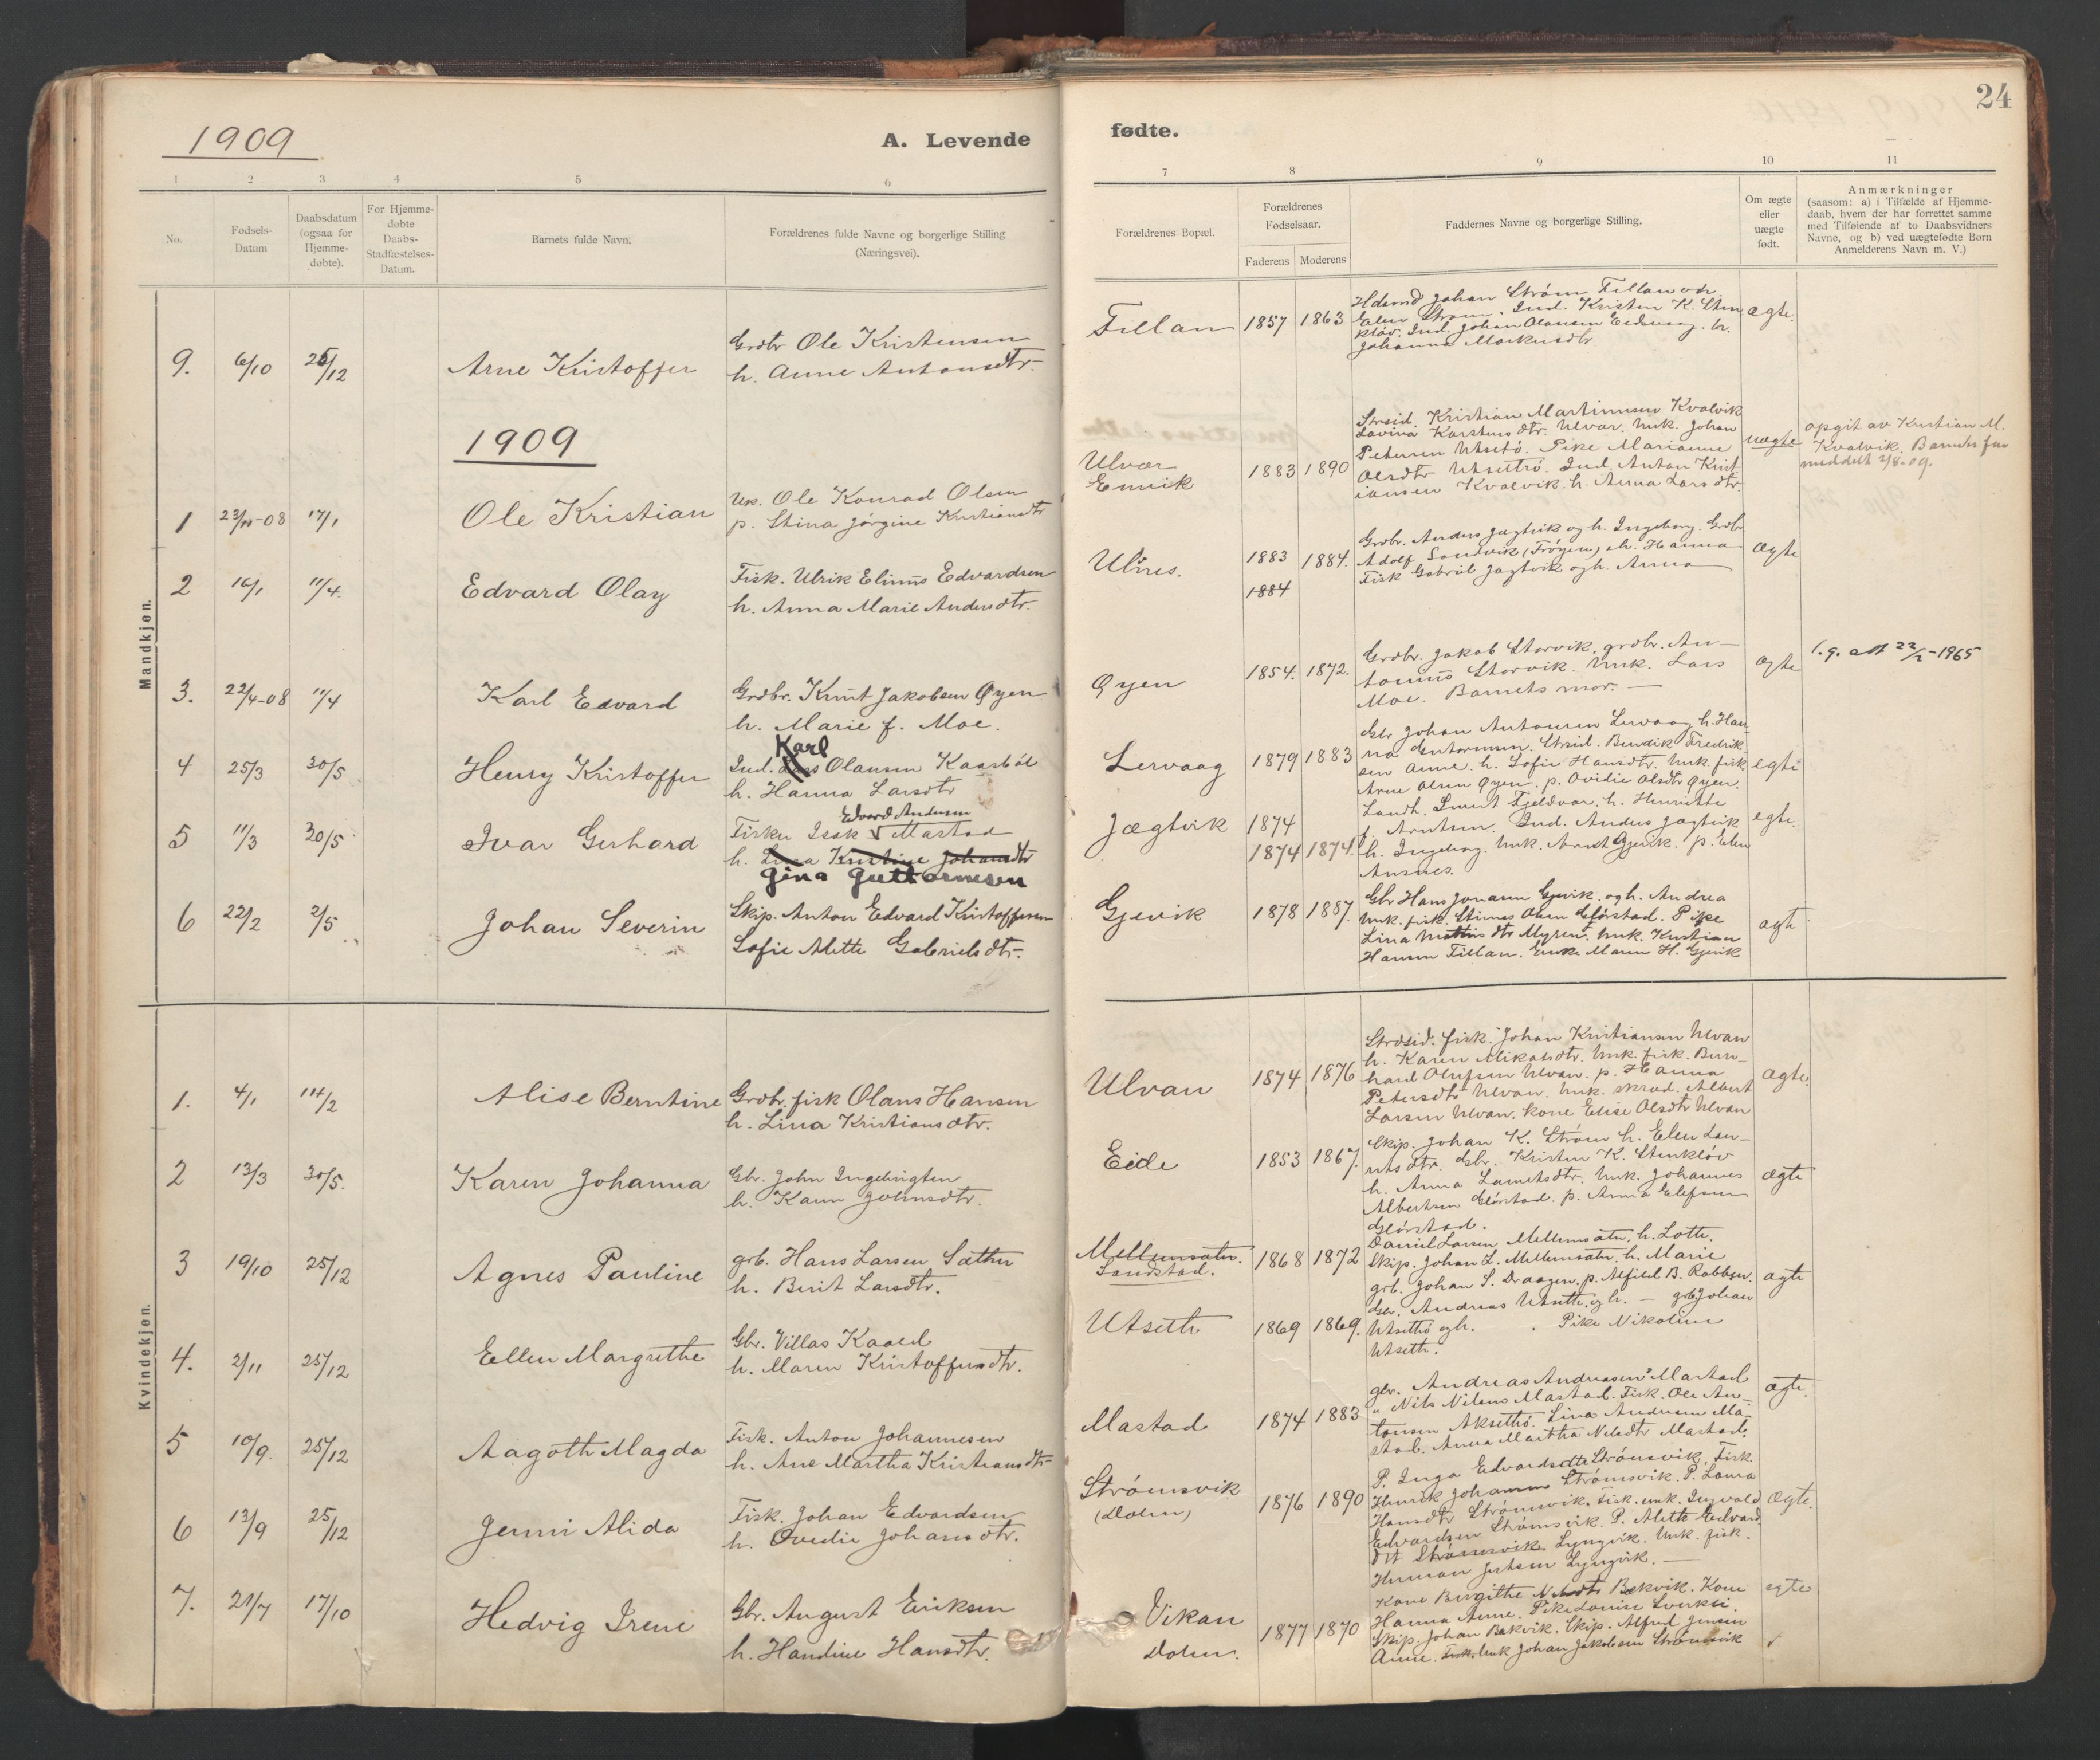 24
1909
A. Levende
fødte.
1 2 3 4 5 6
7 8 9 10 11
No.
Fødsels-
Datum
Daabsdatum
(ogsaa for
Hjemme-
døbte).
For Hjemme-
døbte
Daabs-
Stadfæstelses-
Datum.
Barnets fulde Navn.
Forældrenes fulde Navne og borgerlige Stilling
(Næringsvei).
Forældrenes Bopæl.
Forældrenes
Fødselsaar.
Faderens Moderens
Faddernes Navne og borgerlige Stilling.
Om ægte
eller
uægte
født.
Anmærkninger
(saasom: a) i Tilfælde af Hjemme-
daab, hvem der har forrettet samme
med Tilføiende af to Daabsvidners
Navne, og b) ved uægtefødte Børn
Anmelderens Navn m. V.)
Mandkjøn.
9. 6/10 26/12 Arne Kristoffer
Grdbr Ole Kristensen
h. Anne Antonsdtr.
Fillan 1857 1863
Johan Strøm Fillan
Elen Strøm. Ind. Kristen K. Sten
kløv. Ind. Johan Olausen Eidsvaag. h.
Johanna Markusdtr
ægte.
1909
1 23/11-08 17/1 Ole Kristian
Uk. Ole Konrad Olsen
p. Stina Jørgine Kristiansdtr
Ulvær
Emvik
1883 1890
Strsid. Kristian Martinusen Kvalvik
Lovina Karstensdtr. Ulvær. Unk. Johan
Petersen Utsetø. Pike Marianne
Olsdtr Utsetø. Ind. Anton Krist-
iansen Kvalvik. h. Anna Larsdtr.
uægte
opgit av Kristian M.
Kvalvik. Barnets far
meddelt 2/8-09.
2 16/1 11/4. Edvard Olay
Fisk. Ulrik Elinus Edvardsen
h. Anna Marie Andersdtr.
Ulnes. 1883 1884.
1884
Grdbr. Anders Jægtvik og h. Ingeborg. Grdbr.
Adolf Sandvik (Frøyen) h. Hanna
Fisk Gabriel Jægtvik og h. Anna
ægte
3. 22/4-08 11/4 Karl Edvard
Grdbr. Knut Jakobsen Øyen
h. Marie f. Moe.
Øyen 1854. 1872.
Grdbr. Jakob Storvik, grdbr. An-
tonius Storvik. Unk. Lars
Moe. Barnets mor. —
ægte
l.g. att 22/2-1965
4 25/3 30/5 Henry Kristoffer
Karl
Ind. Lars Olausen Kaarbøl
h. Hanna Larsdtr
Lervaag 1879 1883
Johan Antonsen Lervaag h. Han-
na Strsid. Bendik Fredrik-
sen Anne. h. Sofie Hansdtr. Unk. fisk
Arne Olsen Øyen. p. Ovidie Olsdtr Øyen.
egte
5 11/3 30/5 Ivar Gerhard
Edvard Andersen
Fisker Isak V Mastad
h. Lina Kristine Johansdtr
Gina Guttormsen
Jægtvik 1874
1874 1874.
Landh. Fjeldvær. h. Henriette
f. Arntsen. Ind. Anders Jægtvik
h. Ingeborg. Unk. Arnt Gjevik. p. Elen
Ansnes.
egte.
6 22/2 2/5. Johan Severin
Skip. Anton Edvard Kristoffersen
Sofie Alette Gabrielsdtr.
Gjevik 1878 1887.
Gbr Hans Jonassen Gjevik. og h. Andrea
Unk. fisk. Stines Olsen Glørstad. Pike
Lina dtr Myren. Unk. Kristian
Hansen Fillan. Enke Maren H. Gjevik
ægte
Kvindekjøn.
1. 4/1 14/2 Alise Berntine
Grdbr. fisk Olaus Hansen
h. Lina Kristiansdtr.
Ulvan 1874 1876
Strdsid. fisk. Johan Kristiansen Ulvan
h. Karen Mikalsdtr. Unk. fisk. Bern-
hard Olufsen Ulvan. p. Hanna
Petersdtr Ulvan. Unk. skræd. Albert
Larsen Ulvan. kone Elise Olsdtr Ulvan
ægte.
2 13/3 30/5. Karen Johanna
Gbr. John Ingebrigtsen
h. Karen Johnsdtr.
Eide 1853 1867.
Skip. Johan K. Strøm h. Elen Lau-
ritsdtr. Gbr. Kristen K. Stenkløv
h. Anna Lauritsdtr. Unk. Johannes
Albertsen Glørstad. p. Anna Elefsen
Glørstad.
ægte
3 19/10 25/12 Agnes Pauline
grb. Hans Larsen Sæther
h. Berit Larsdtr.
Mellemsæter.
Sandstad.
1868 1872
Daniel Larsen Mellemsæter, h. Lotte.
Skip. Johan L. Mellemsæter. h. Marie
grb. Johan S. Draagen. p. Alfild B. Robben.
ægte
4. 2/11 25/12 Ellen Margrethe
Gbr. Villas Kaard
h. Maren Kristoffersdtr.
Utseth 1869 1869.
Gbr. Andreas Utseth og h. — grb. Johan
Utsethø og h. . Pike Nikoline
Utseth.
5 10/9. 25/12 Aagoth Magda
Fisk. Anton Johannesen
h. Ane Martha Kristiansdtr
Mastad 1874 1883
gbr. Andreas Andreassen Mastad
" Nils Nilsens Mastad. Fisk. Ole An-
tonsen Aksethø. Lina Andersen Ma-
stad. Anna Martha Nilsdtr Mastad.
ægte.
6 13/9 25/12 Jenni Alida
Fisk. Johan Edvardsen
h. Ovedie Johansdtr.
Strømsvik
(Dolm)
1876 1890
P. Inga Edvardsdtr Strømsvik. Fisk.
Henrik Johansen Strømsvik. P. Laura
Hansdtr Strømsvik. Fisk. unk. Ingvald
Edvardsen Strømsvik. P. Alette Edvard
dtr Strømsvik Lyngvik. Unk. fisk.
Herman Lyngvik. —
ægte.
7. 21/7 17/10 Hedvig Irene
Gbr. August Eriksen
h. Handine Hansdtr.
Vikan
Dolm.
1877 1870
Kone Birgithe Nilsdtr Bekvik. Kone
Hanna Anne. Pike Louise Sverkli.
Skip. Johan Bekvik. Skip. Alfred Jensen
Anne. Fisk. unk Johan Jakobsen Strømsvik
egte